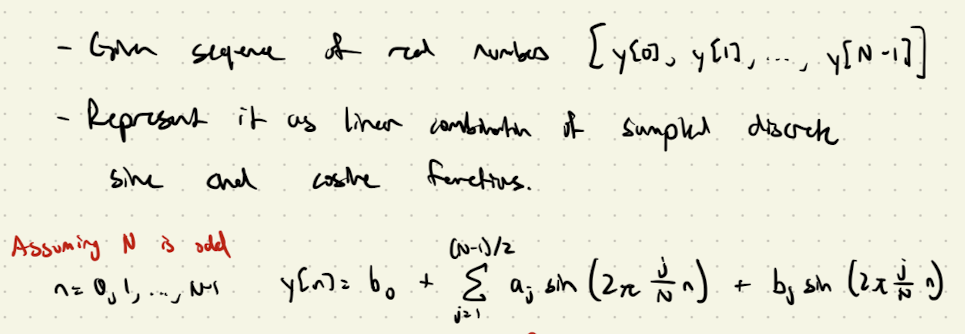 - Given sequence of real numbers [y[0], y[1], ..., y[N-1]]
- Represent it as linear combination of sampled discrete
sine and cosine functions.
Assuming N is odd
n = 0, 1, ..., N-1 y[n] = b_0 + \sum_{j=1}^{(N-1)/2} a_j sin (2π \frac{j}{N} n) + b_j sin (2π \frac{j}{N} n)